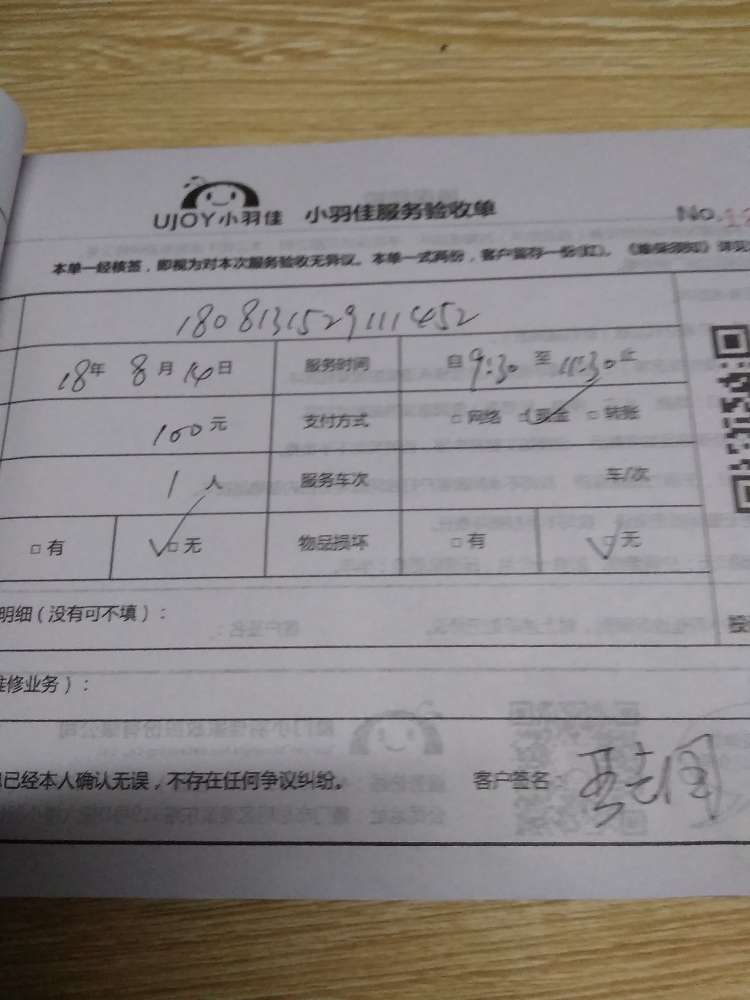 UJOY小羽佳 小羽佳服务验收单 No.12
本单一经核签，即视为对本次服务验收无异议。本单一式两份，客户留存一份(红)。《维保须知》详见
180813152911452
18年 8月14日 服务时间 自9:30至11:30止
100元 支付方式 □网络 ☑现金 □转账
1人 服务车次 车/次
□有 ☑无 物品损坏 □有 ☑无
明细（没有可不填）：
维修业务）：
已经本人确认无误，不存在任何争议纠纷。 客户签名：